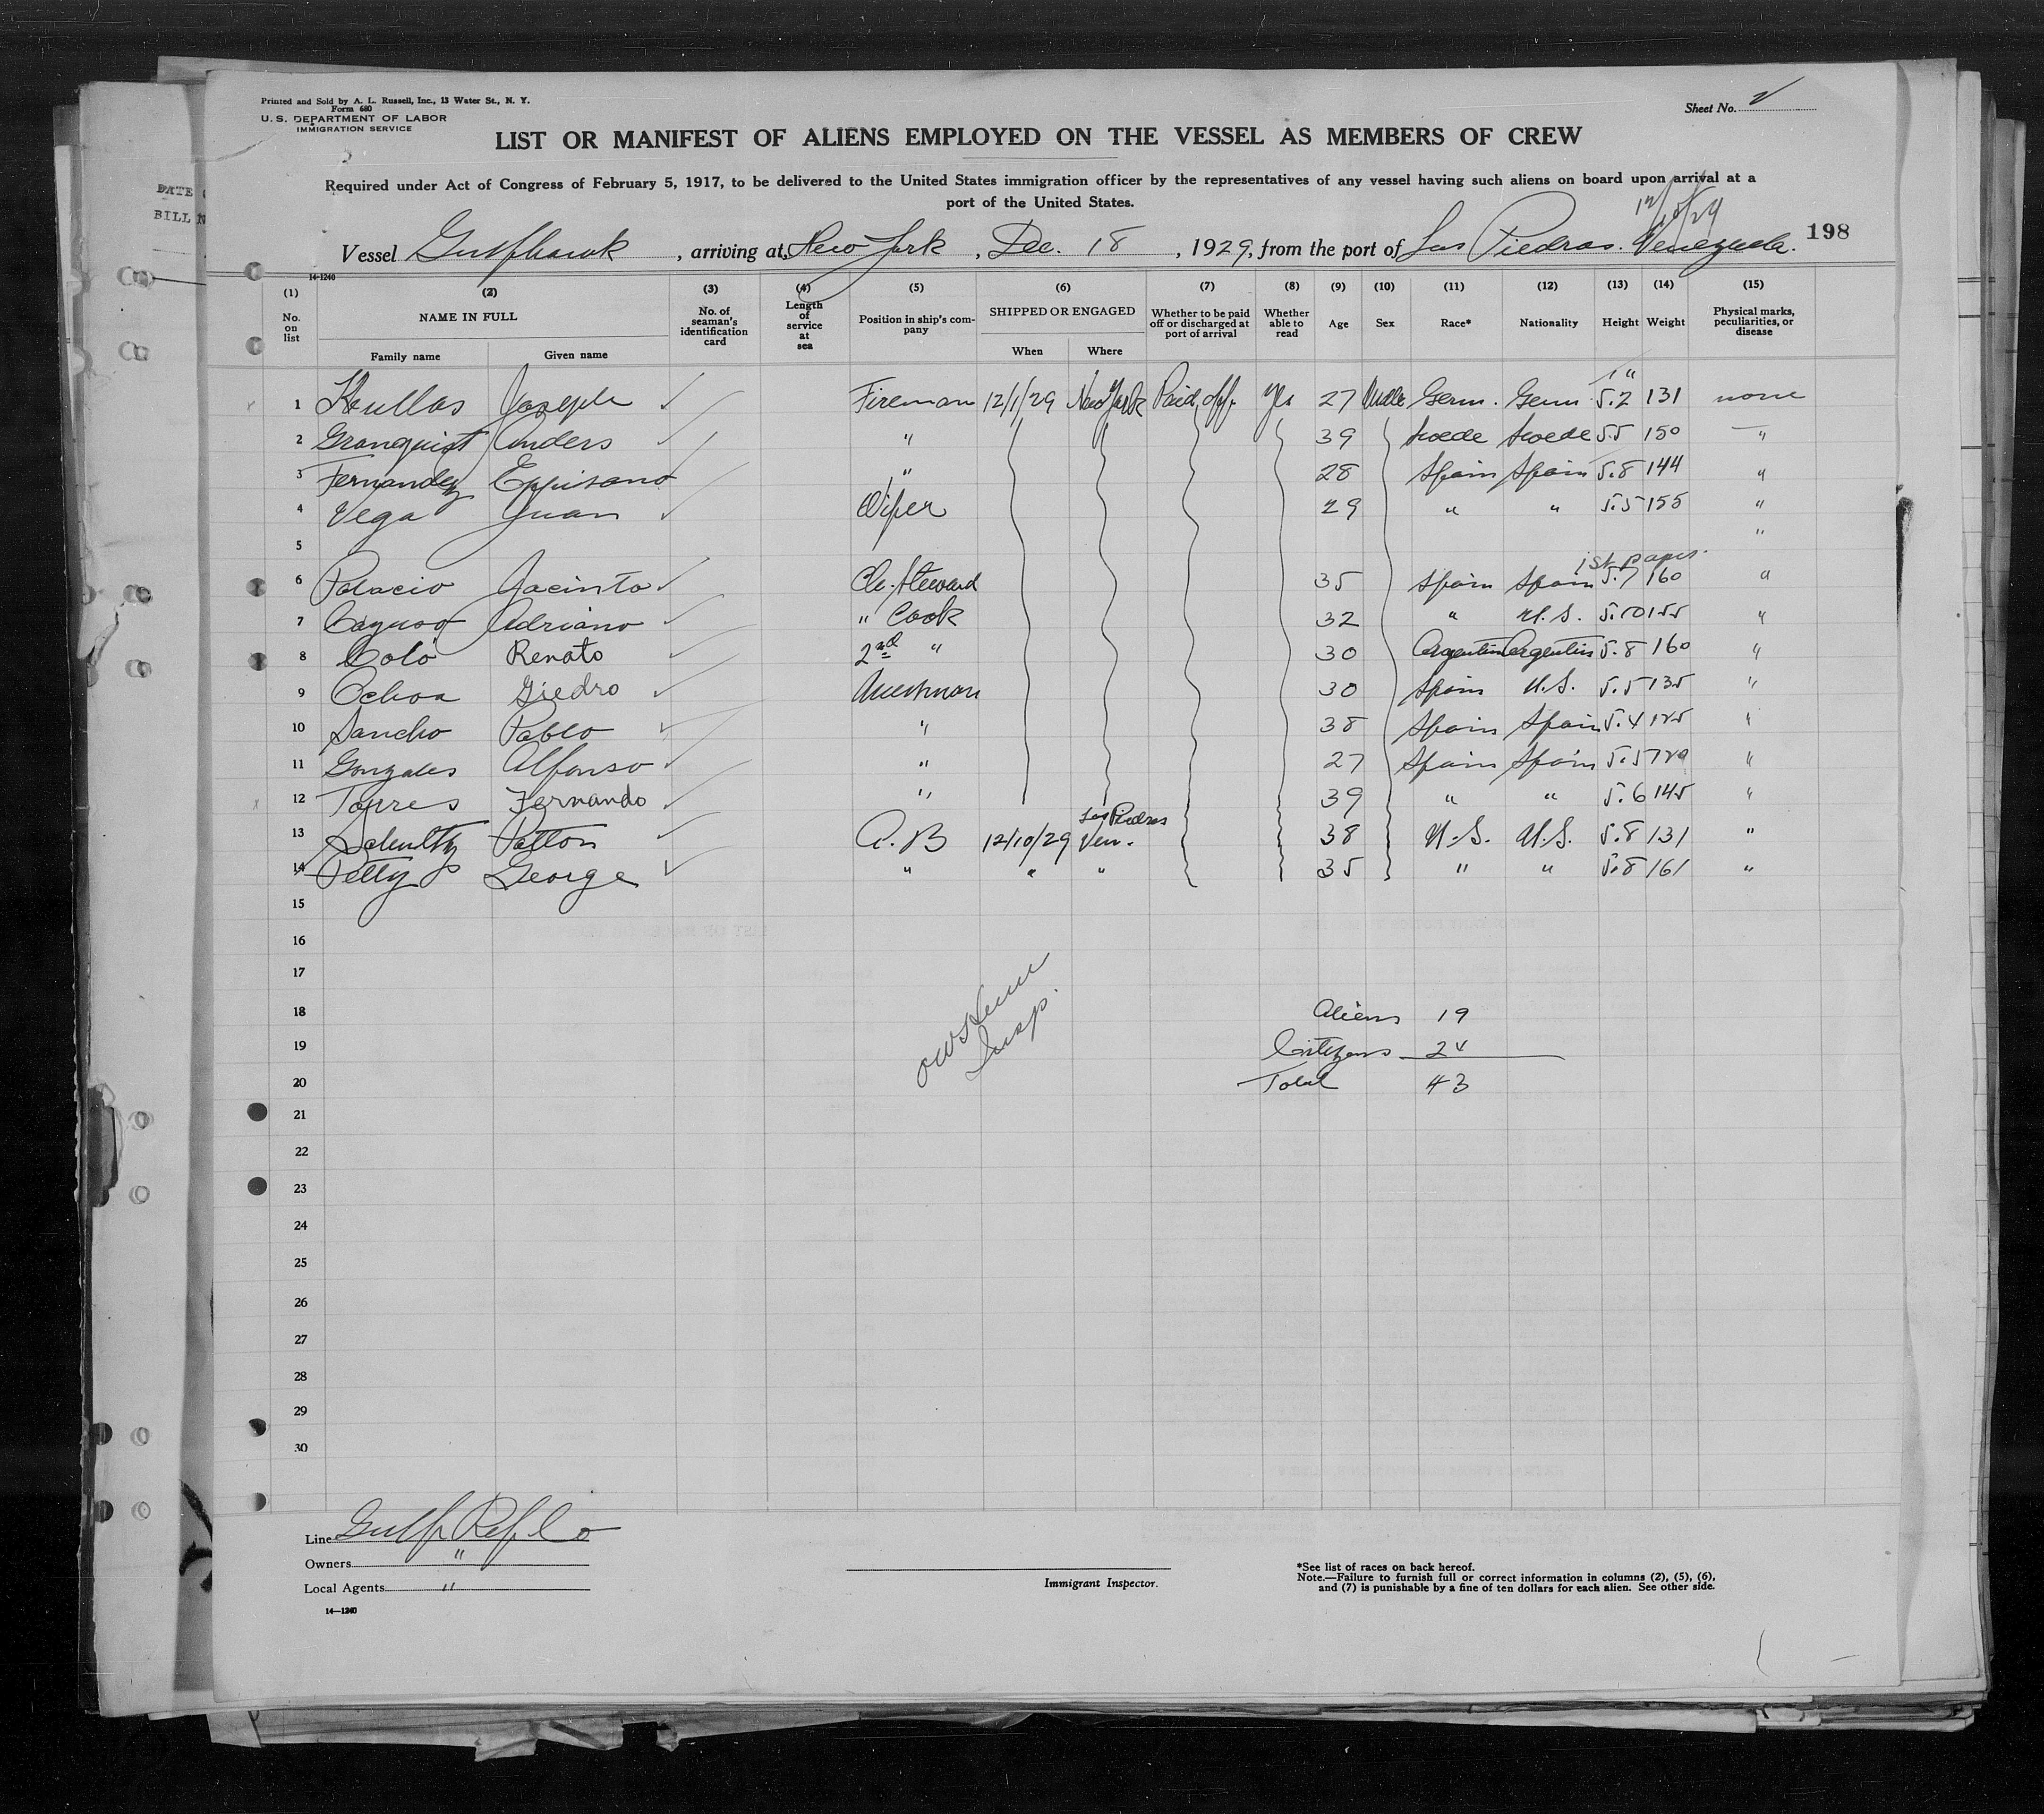 Printed and Sold by A. L. Russell, Inc., 13 Water St., N. Y.
Form 680
U. S. DEPARTMENT OF LABOR
IMMIGRATION SERVICE
Sheet No. 2
LIST OR MANIFEST OF ALIENS EMPLOYED ON THE VESSEL AS MEMBERS OF CREW
Required under Act of Congress of February 5, 1917, to be delivered to the United States immigration officer by the representatives of any vessel having such aliens on board upon arrival at a
port of the United States.
DATE
BILL N
12/18/29
198
Vessel Gulfhawk, arriving at New York, Dec. 18, 1929, from the port of Las Piedras. Venezuela.
14-1240
(1) (2) (3) (4) (5) (6) (7) (8) (9) (10) (11) (12) (13) (14) (15)
No. on list NAME IN FULL No. of seaman's identification card Length of service at sea Position in ship's company SHIPPED OR ENGAGED Whether to be paid off or discharged at port of arrival Whether able to read Age Sex Race* Nationality Height Weight Physical marks, peculiarities, or disease
Family name Given name When Where
1 Joseph ✓ Fireman 12/1/29 New York Paid off. Yes 27 Male Germ. Germ 5.2 131 none
2 Granquist Anders ✓ " 39 Swede Swede 5.5 150 "
3 Fernandez ✓ " 28 Spain Spain 5.8 144 "
4 Vega Juan ✓ Wiper 29 " " 5.5 155 "
5 "
1st papers.
6 Palacio Jacinto ✓ Ch. Steward 35 Spain Spain 5.7 160 "
7 Adriano ✓ " Cook 32 " U.S. 5.10 155 "
8 Coló Renato 2nd " 30 Argentin Argentin 5.8 160 "
9 Ochoa Giedro ✓ Messman 30 Spain U.S. 5.5 135 "
10 Sancho Pablo ✓ " 38 Spain Spain 5.4 125 "
11 Gonzales Alfonso ✓ " 27 Spain Spain 5.5 "
12 Torres Fernando ✓ " 39 " " 5.6 145 "
Las Piedras
13 Schultz Patton ✓ A.B 12/10/29 Ven. 38 U.S. U.S. 5.8 131 "
14 Petty George ✓ " " " 35 " " 5.8 161 "
15
16
17
18 Aliens 19
19 Citizens 24
20 Total 43
Insp.
21
22
23
24
25
26
27
28
29
30
Line Gulf Ref. Co
Owners "
Local Agents "
14—1240
Immigrant Inspector.
*See list of races on back hereof.
Note.—Failure to furnish full or correct information in columns (2), (5), (6),
and (7) is punishable by a fine of ten dollars for each alien. See other side.